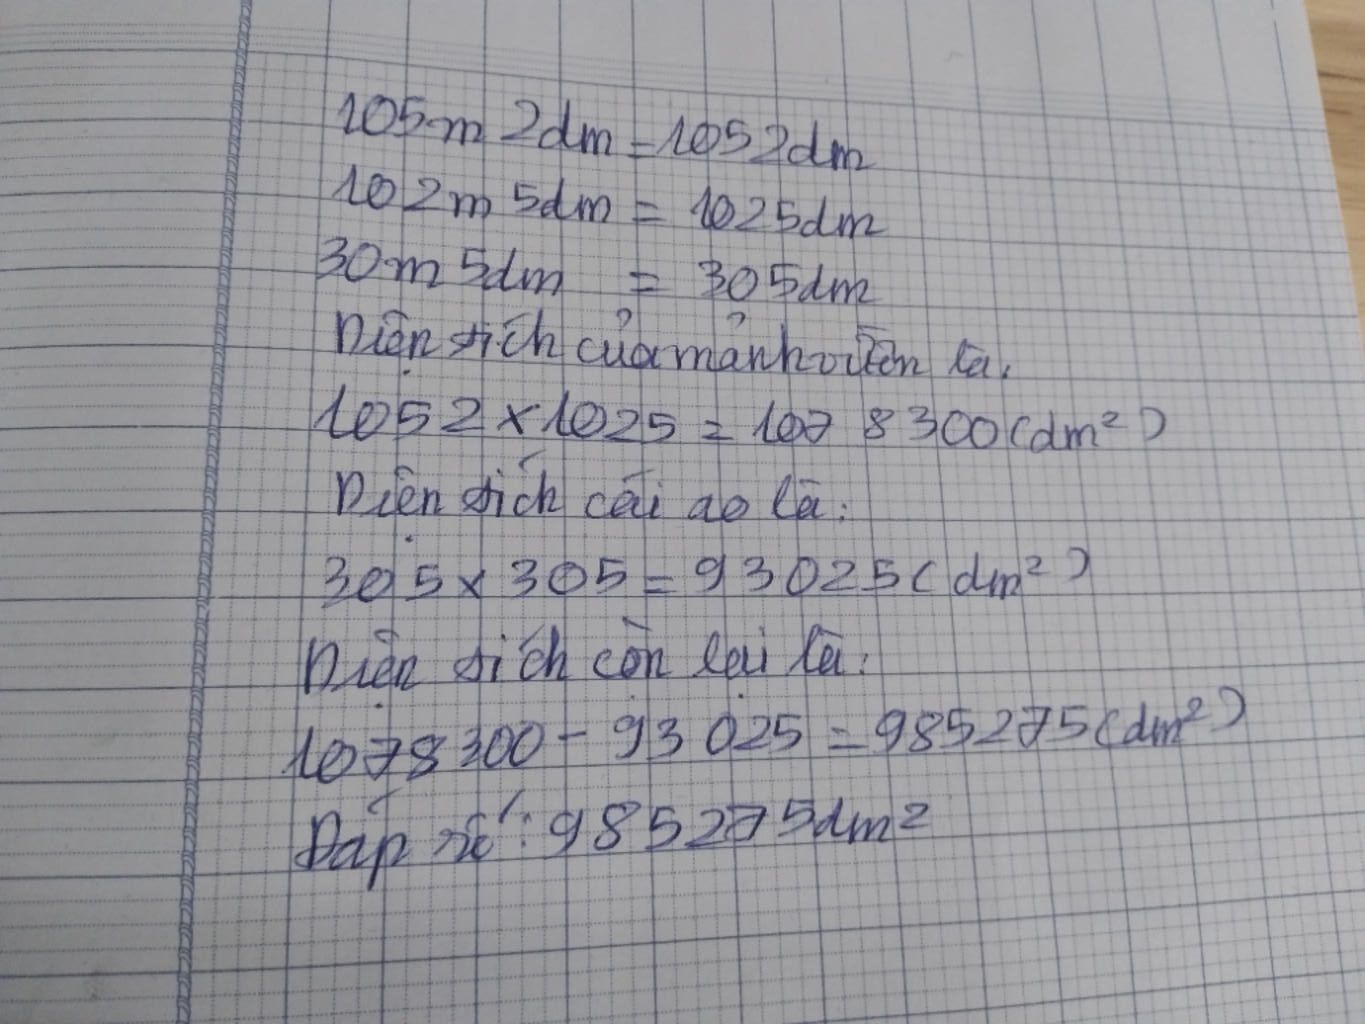 105m 2dm = 1052dm
102m 5dm = 1025dm
30m 5dm = 305dm
Diện tích của mảnh vườn là.
1052 x 1025 = 1078300(dm²)
Diện tích cái ao là:
305 x 305 = 93025(dm²)
Diện tích còn lại là:
1078300 - 93025 = 985275(dm²)
Đáp số: 985275dm²